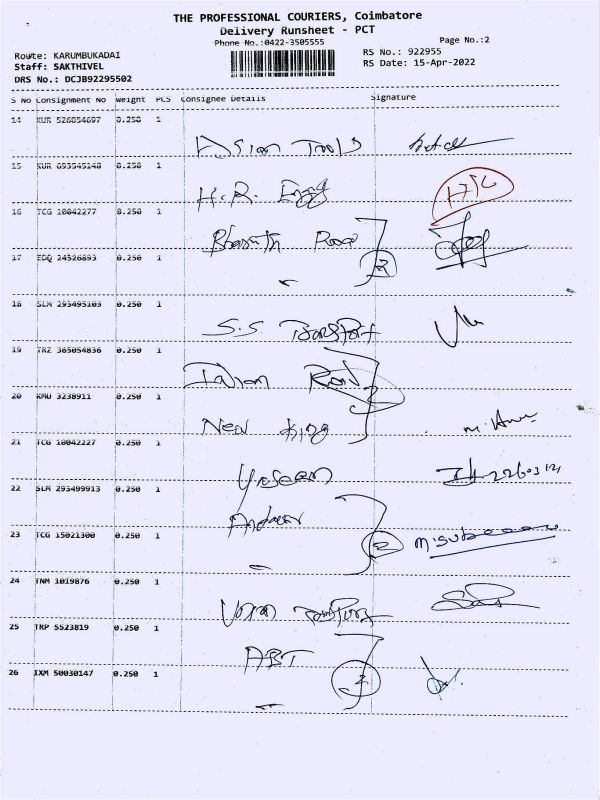 THE PROFESSIONAL COURIERS, Coimbatore
Delivery Runsheet - PCT
Phone No.:0422-3505555
Page No.:2
Route: KARUMBUKADAI
RS No.: 922955
Staff: SAKTHIVEL
RS Date: 15-Apr-2022
DRS No.: DCJB92295502
S No Consignment No Weight PCS Consignee Details Signature
14 KUR 526054697 0.250 1
Asian Tools
15 KUR 693545148 0.250 1
H.R. Engg
16 TCG 10042277 0.250 1
Bharath Road
17 EDQ 24526893 0.250 1
2
18 SLM 293495103 0.250 1
S.S Transport
19 TRZ 365054836 0.250 1
20 KMU 3238911 0.250 1
New King
21 TCG 10042227 0.250 1
Yaseen
22 SLM 293499913 0.250 1
23 TCG 15021300 0.250 1
2
24 TNM 1019876 0.250 1
25 TRP 5523819 0.250 1
ABT
26 IXM 50030147 0.250 1
2